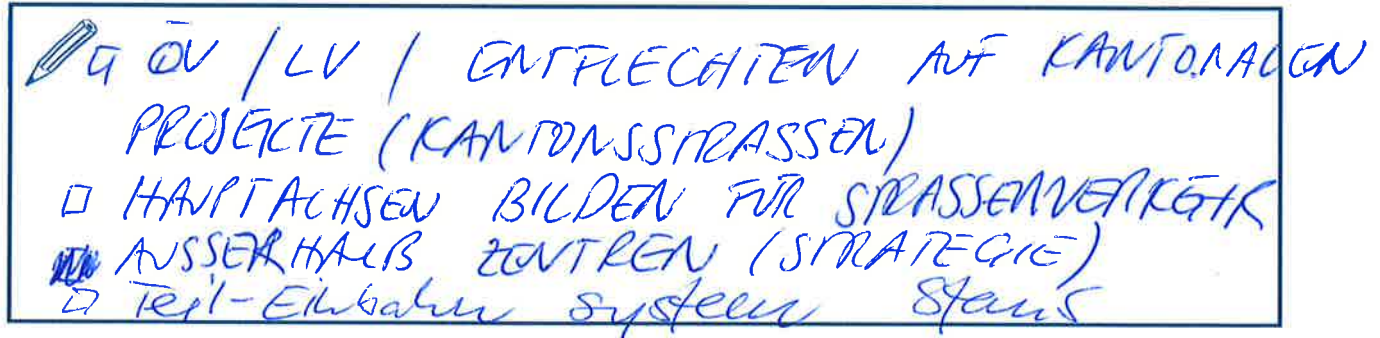 □ ÖV / LV / ENTFLECHTEN AUF KANTONALEN
PROJEKTE (KANTONSSTRASSEN)
□ HAUPTACHSEN BILDEN FÜR STRASSENVERKEHR
AUSSERHALB ZENTREN (STRATEGIE)
□ Teil-Einbahn system Stans